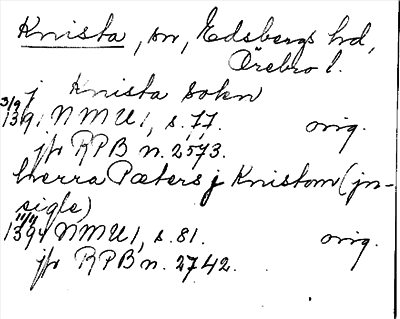 Knista, sn, Edsbergs hd,
Örebro l.
j Knista sokn
3/9 1391 NMU 1, s. 77. orig.
jfr RPB n. 2573.
herra Pæters j Knistom (in-
sigle)
11/4 1394 NMU 1, s. 81. orig.
jfr RPB n. 2742.